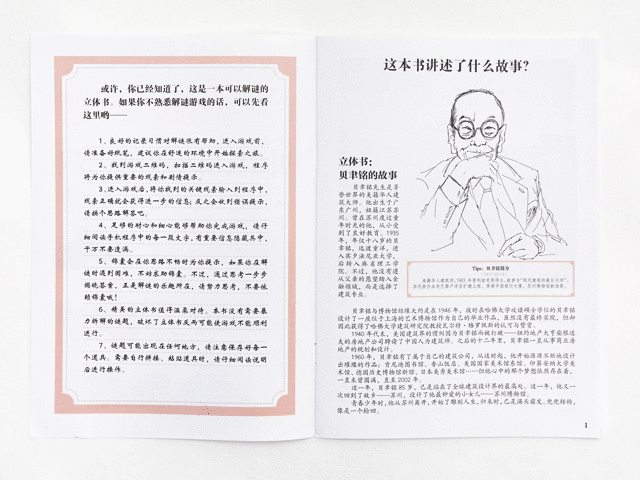 或许,你已经知道了,这是一本可以解谜的
立体书。如果你不熟悉解谜游戏的话,可以先看
这里哟——
1、良好的记录习惯对解谜很有帮助,进入游戏前,
请准备好纸笔,建议你在舒适的环境中开始探索之旅。
2、找到游戏二维码,扫描二维码进入游戏,程序
将为你提供重要的线索和剧情提示。
3、进入游戏后,将你找到的关键线索输入到程序中,
线索正确就会获得进一步的信息;反之会收到错误提示,
请换个思路解答吧。
4、足够的耐心和细心能够帮助你完成游戏,请仔
细阅读手机程序中的每一段文字,有重要信息隐藏其中,
千万不要遗漏。
5、锦囊会在你思路不畅时为你提示,如果你在解
谜时遇到困难,不妨求助锦囊。不过,通过思考一步步
揭晓答案,正是解谜的乐趣所在,请努力思考,不要依
赖锦囊哦!
6、精美的立体书值得温柔对待。本书没有需要暴
力拆解的谜题,破坏立体书反而可能使游戏不能顺利进
行。
7、谜题可能出现在任何地方,请注意保存好每一
个道具。需要自行拼接、粘贴道具时,请仔细阅读说明
后进行操作。
这本书讲述了什么故事?
立体书:
贝聿铭的故事
贝聿铭先生是享
誉世界的美籍华人建
筑大师。他出生于广
东广州,祖籍江苏苏
州。曾在苏州度过童
年时光的他,从小受
到了良好教育。1935
年,年仅十八岁的贝
聿铭,远渡重洋,进
入宾夕法尼亚大学,
后转入麻省理工学
院。不过,他没有遵
从父亲的愿望踏入金
融领域,而是选择了
建筑专业。
Tips:贝聿铭简介
贝聿铭与博物馆结缘大约是在 1946 年。彼时在哈佛大学攻读硕士学位的贝聿铭
设计了一座位于上海的艺术博物馆作为自己的毕业作品,虽然没有最终实现,但却
因此获得了哈佛大学建筑研究院教授瓦尔特·格罗佩斯的认可与赞赏。
1940 年代末,美国建筑界的曾何因为贝聿铭而被打破——纽约房地产大亨齐氯
大的房地产公司聘请了中国人为建筑师。之后的十二年里,贝聿铭一直从事商业房
地产的规划和设计。
1960 年,贝聿铭有了属于自己的建筑公司。从这时起,他开始源源不断地设计
出璀璨的作品:肯尼迪图书馆、香山饭店、美国国家美术馆东馆、印第安纳大学美
术馆、德国历史博物馆新馆、日本美秀美术馆……但他心中的那个梦想依然存在着,
一直未曾圆满,直至 2002 年。
这一年,贝聿铭 85 岁,已是站在了全球建筑设计界的最高处。这一年,他又一
次回到了故乡——苏州,设计了他最钟爱的小女儿——苏州博物馆。
青春少年时,他从苏州离开,开始了雕刻人生,归来时,已是满头霜发。兜兜转转,
像是一个轮回。
1